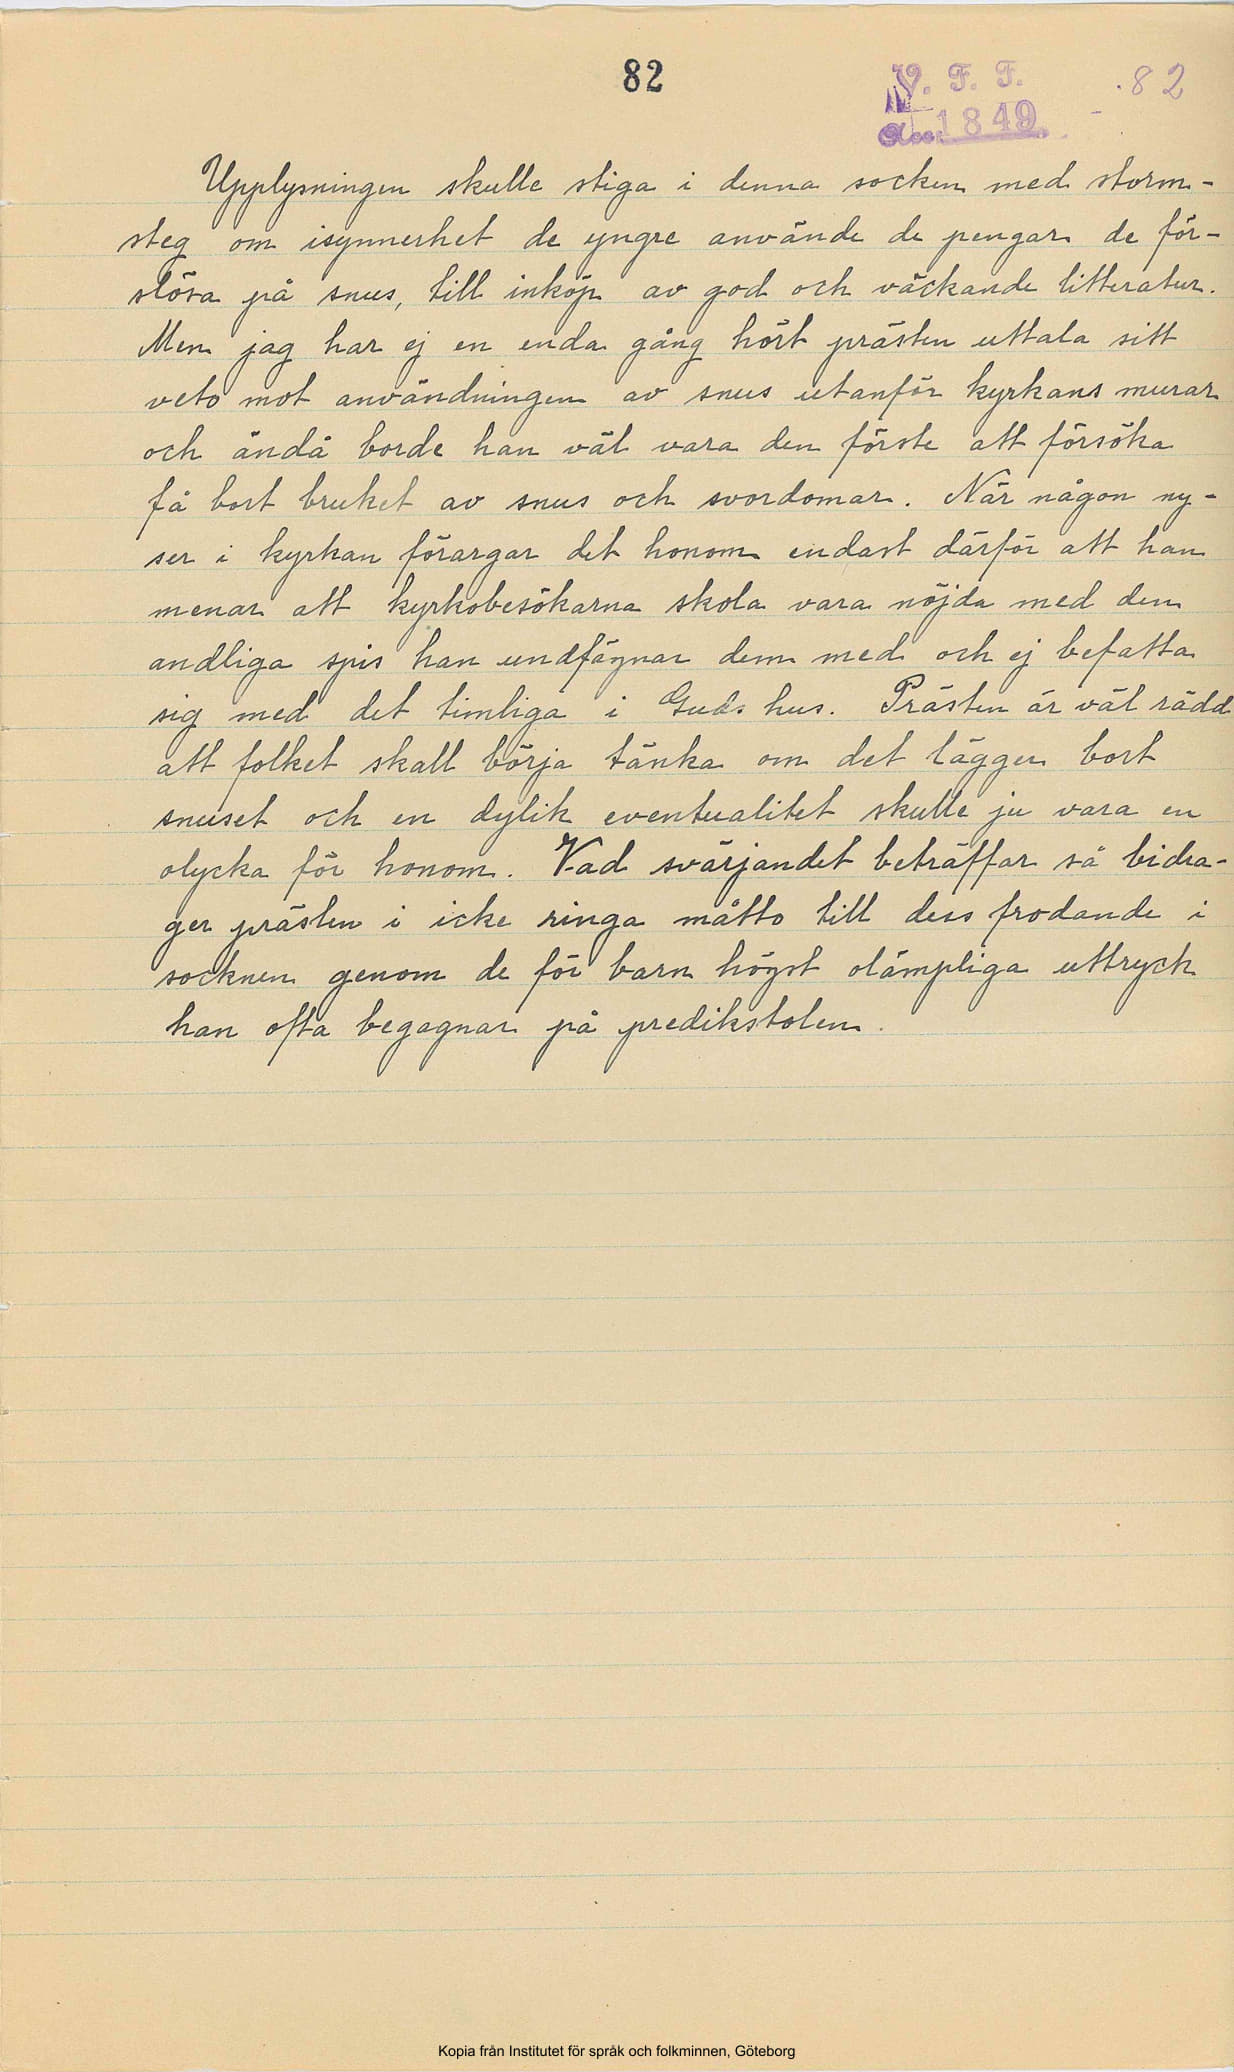 82
V. F. F. 82
Acc. 1849
Upplysningen skulle stiga i denna socken med storm-
steg om isynnerhet de yngre använde de pengar de för-
slösa på snus, till inköp av god och väckande litteratur.
Men jag har ej en enda gång hört prästen uttala sitt
veto mot användningen av snus utanför kyrkans murar
och ändå borde han väl vara den förste att försöka
få bort bruket av snus och svordomar. När någon ny-
ser i kyrkan förargar det honom endast därför att han
menar att kyrkobesökarna skola vara nöjda med den
andliga spis han undfägnar dem med och ej befatta
sig med det timliga i Guds hus. Prästen är väl rädd
att folket skall börja tänka om det lägger bort
snuset och en dylik eventualitet skulle ju vara en
olycka för honom. Vad svärjandet beträffar så bidra-
ger prästen i icke ringa måtto till dess frodande i
socknen genom de för barn högst olämpliga uttryck
han ofta begagnar på predikstolen.
Kopia från Institutet för språk och folkminnen, Göteborg